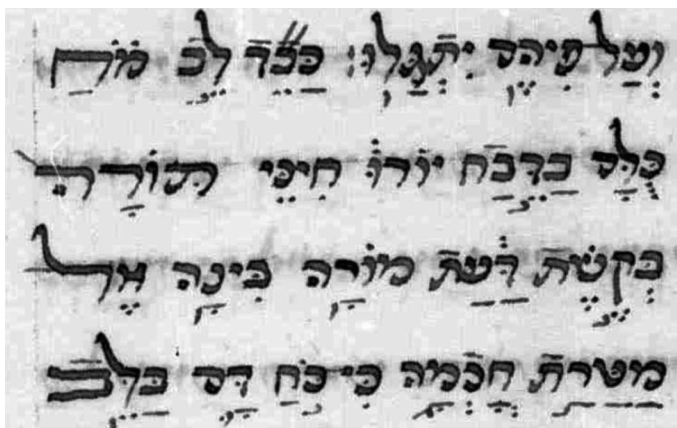 ועל פיהם יתגלו: כבד לב מח
כלם יורו חיצי תורה
בקשת דעת מורה בינה אל
מטרת חכמה כי כח דם בלב